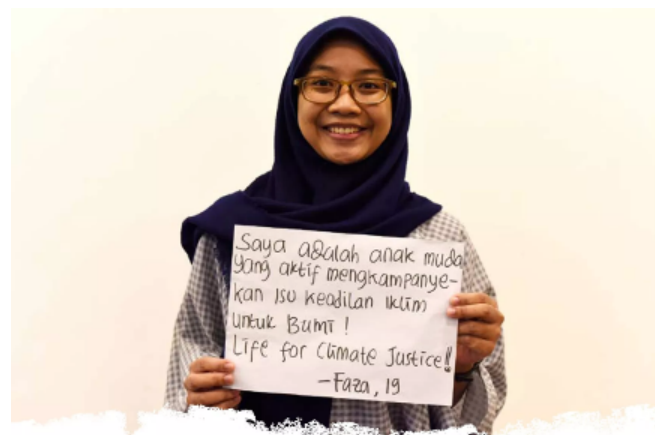 Saya adalah anak muda
yang aktif mengkampanye-
kan isu keadilan iklim
untuk Bumi !
Life for Climate Justice!!
-Faza, 19